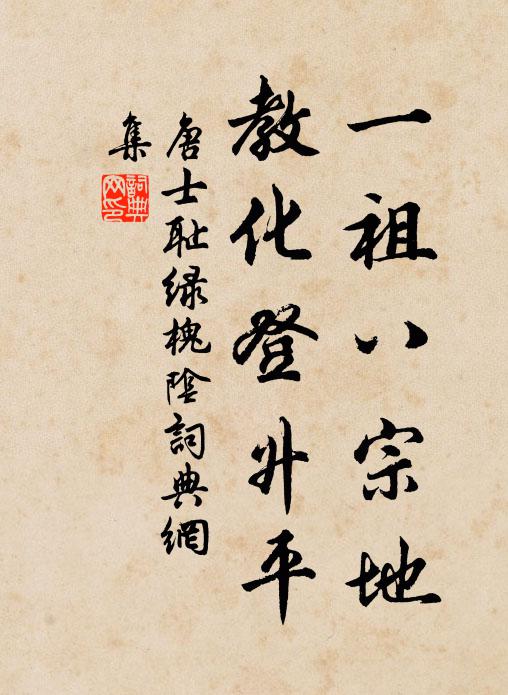 一祖八宗地
教化登升平
唐士耻绿槐陰詞典網
集
詞典
网印